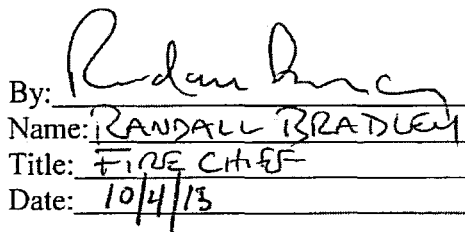 By:
Name: RANDALL BRADLEY
Title: FIRE CHIEF
Date: 10/4/13